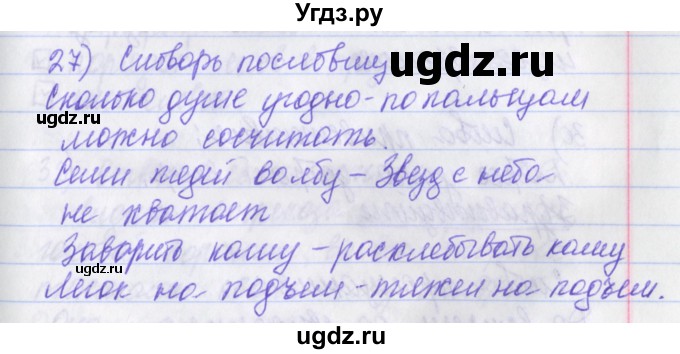 Угдз.ру
27) Сктворь пословицу
Сколько душе угодно - по пальцам
можно сосчитать.
Семи пядей во лбу - Звезд с неба
не хватает
Заварить кашу - расхлебывать кашу
Легок на подъем - тяжел на подъем.
ugdz.ru
©ugdz.ru
©ugdz.ru
ugdz.ru
ugdz.ru